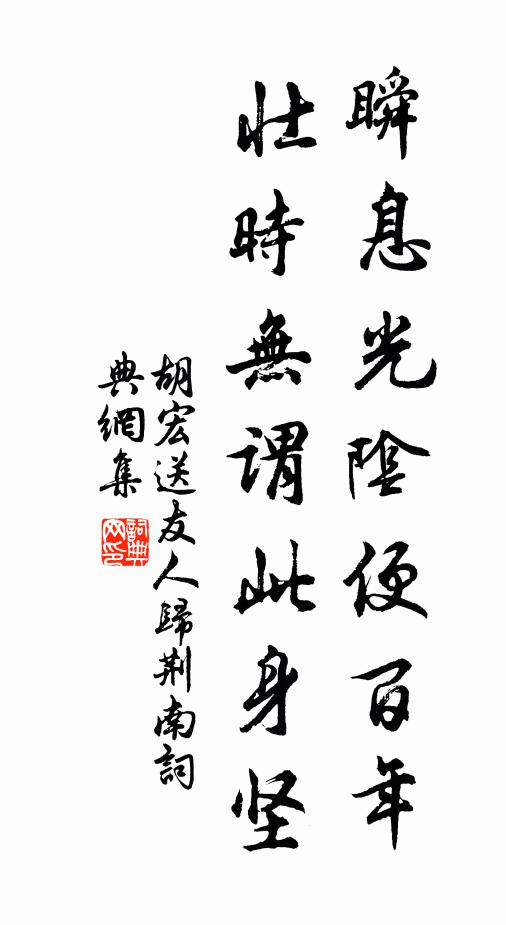 瞬息光陰便百年
壯時無謂此身坚
胡宏送友人歸荆南詞
典網集
詞典网印